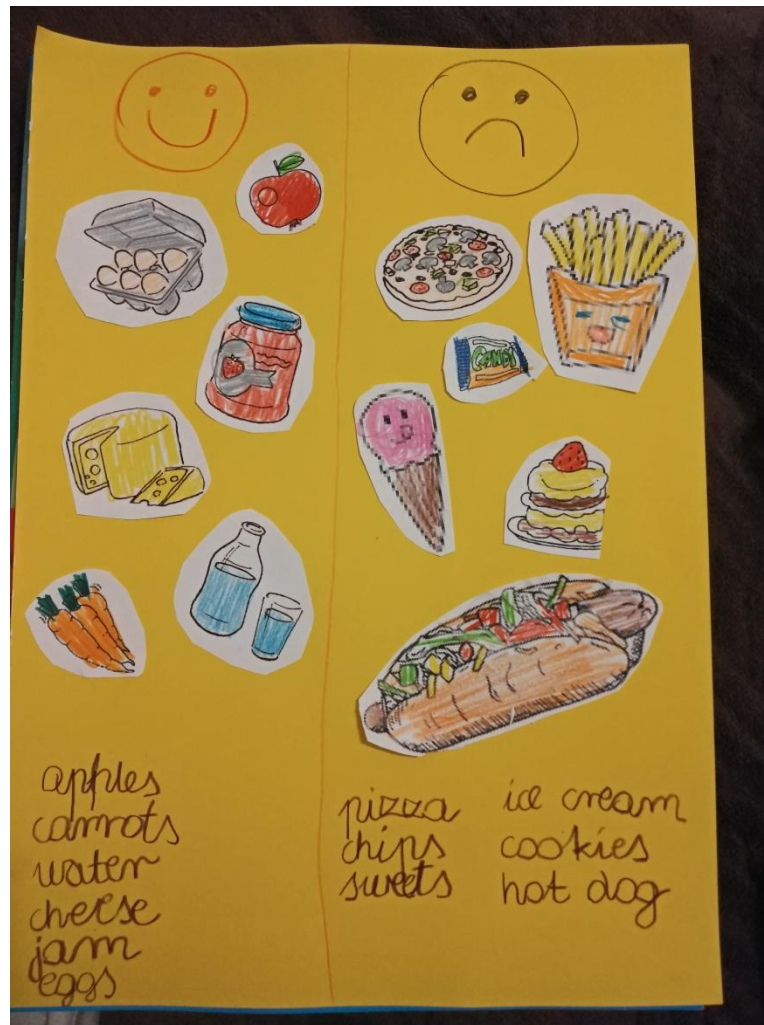 CANDY
apples
carrots
water
cheese
jam
eggs
pizza
chips
sweets
ice cream
cookies
hot dog